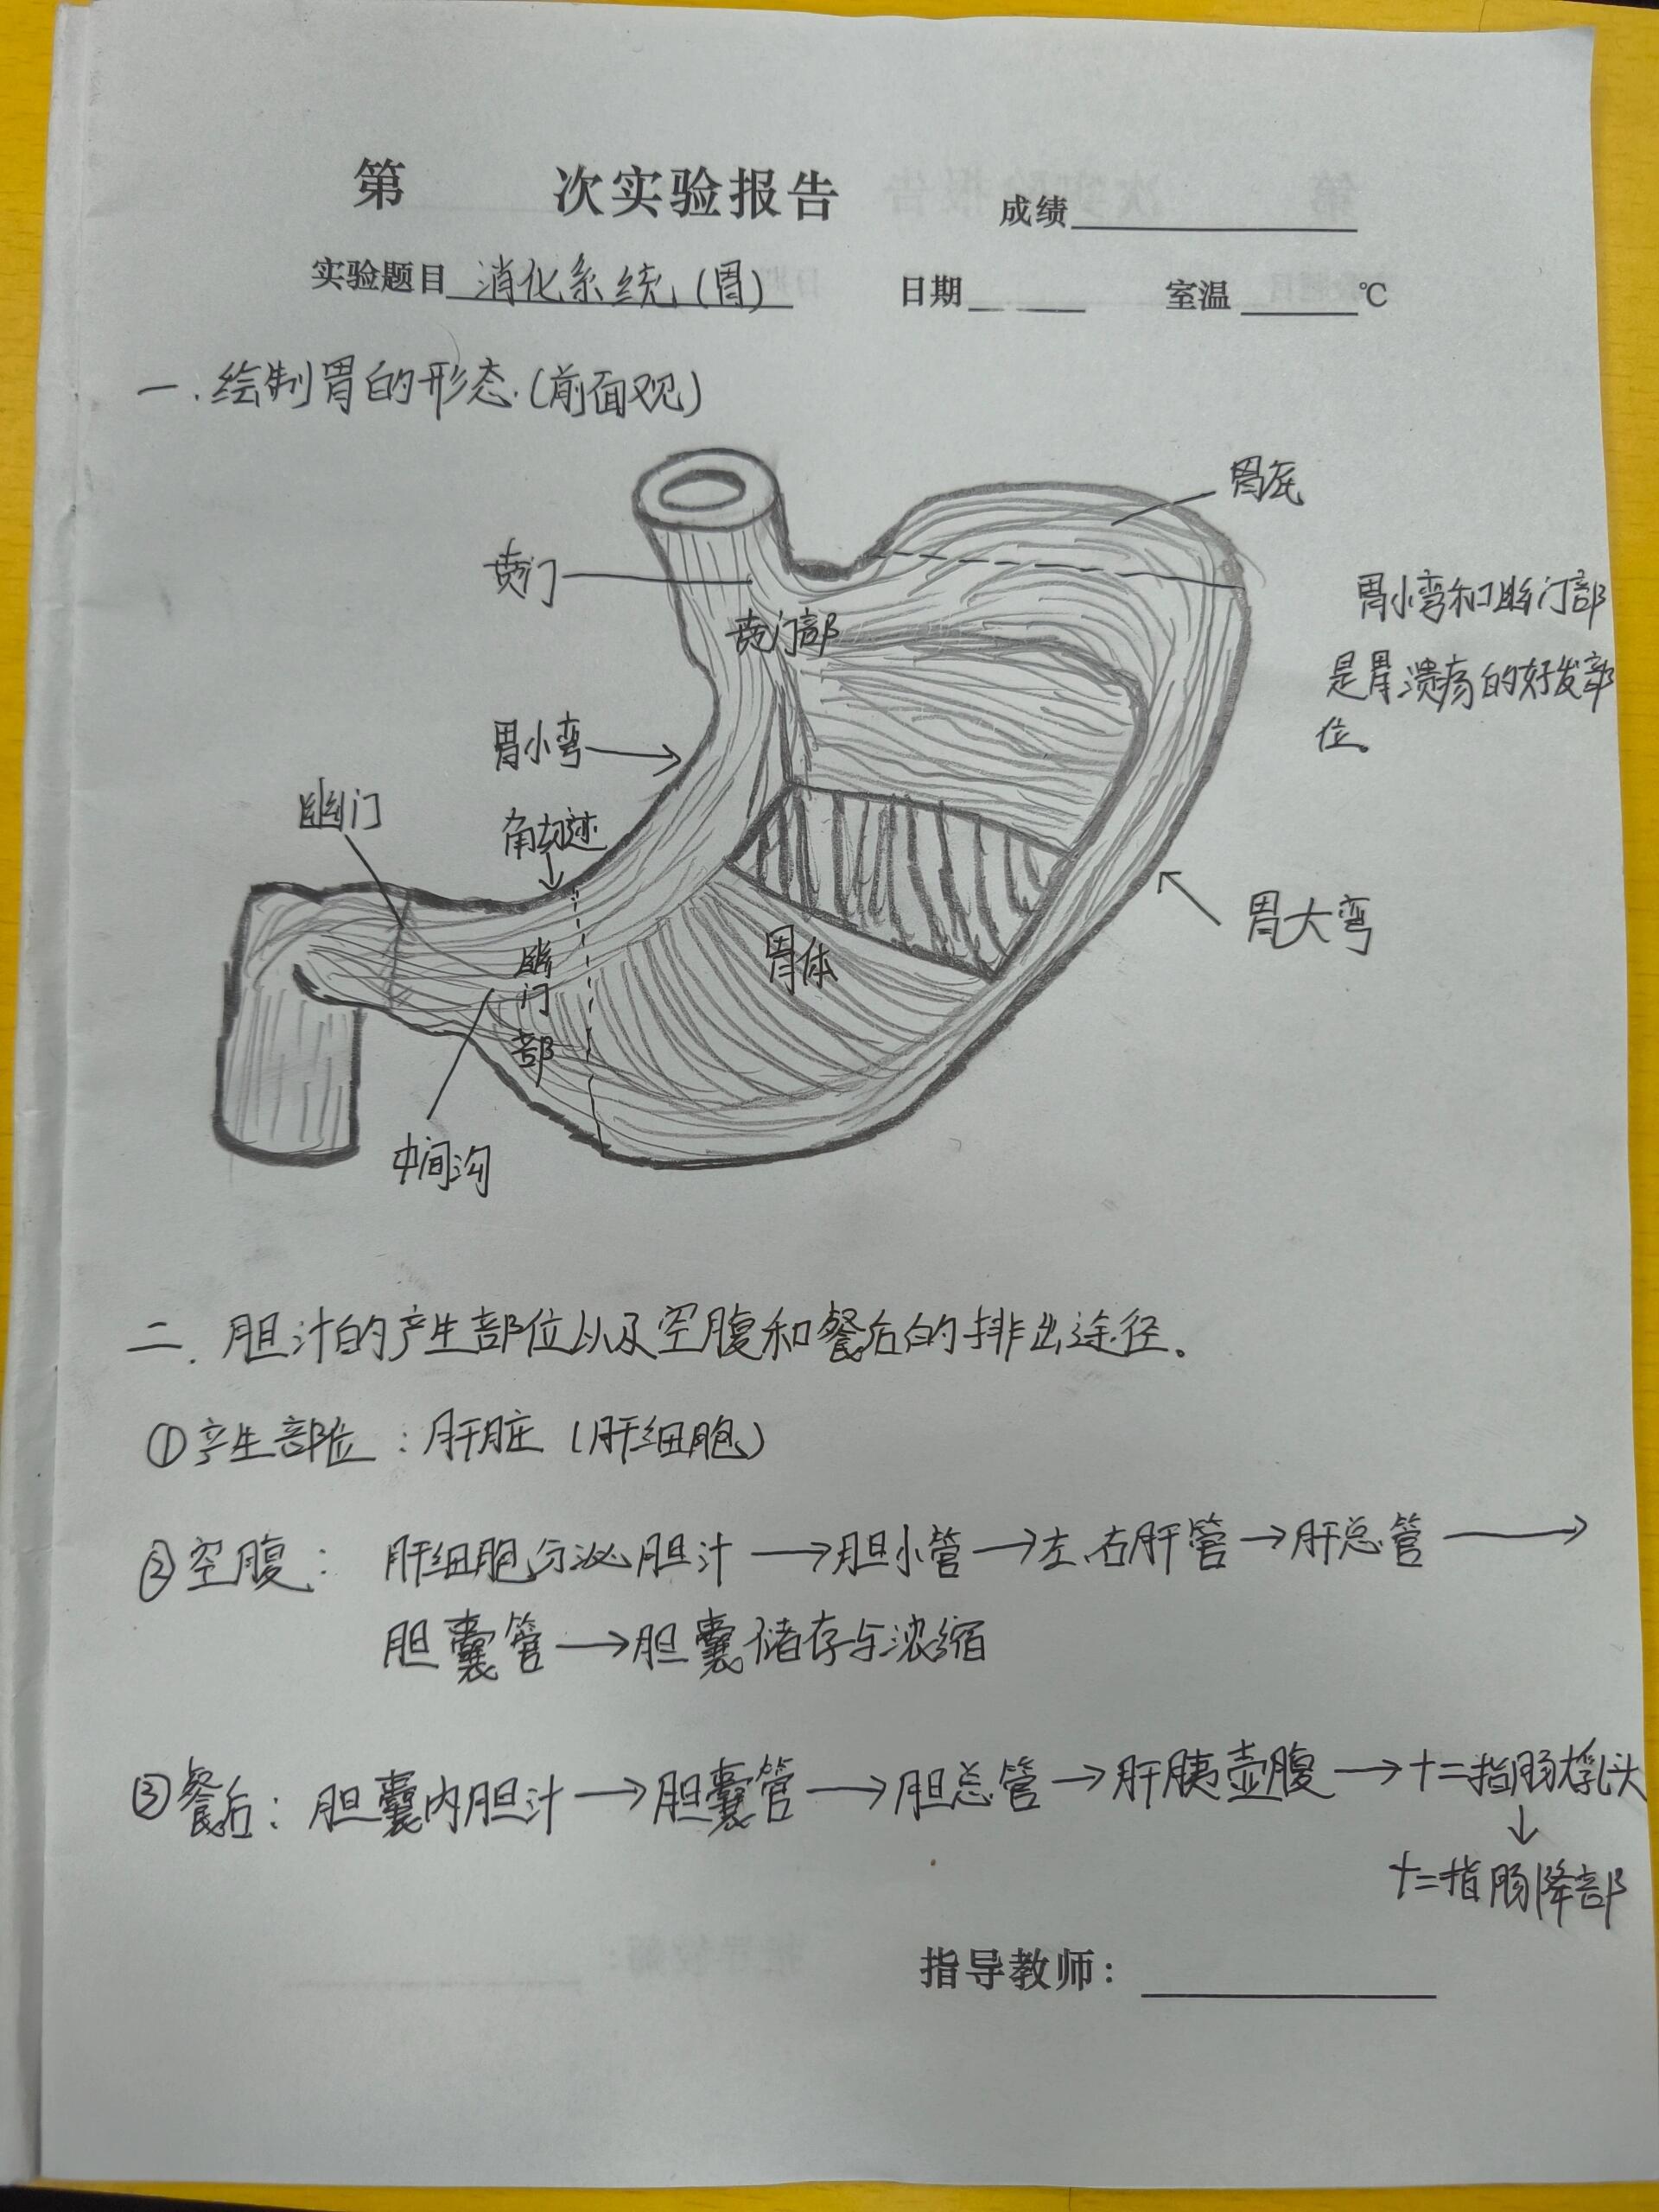 第 次实验报告 成绩
实验题目 消化系统(胃) 日期 室温 ℃
一.绘制胃的形态.(前面观)
胃底
贲门
贲门部
胃小弯和幽门部
是胃溃疡的好发部
位。
胃小弯
幽门
角切迹
胃大弯
幽门部
胃体
中间沟
二.胆汁的产生部位以及空腹和餐后的排出途径。
①产生部位:肝脏(肝细胞)
②空腹: 肝细胞分泌胆汁→胆小管→左、右肝管→肝总管→
胆囊管→胆囊储存与浓缩
③餐后:胆囊内胆汁→胆囊管→胆总管→肝胰壶腹→十二指肠大乳头
↓
十二指肠降部
指导教师: